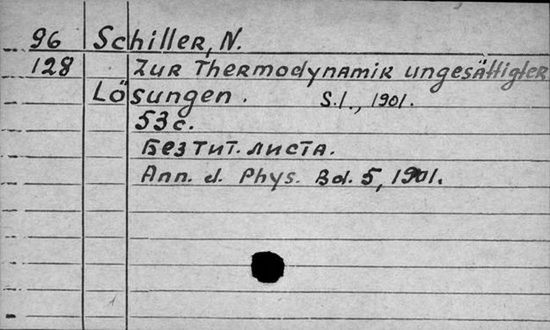 96 Schiller, N.
128 Zur Thermodynamik ungesättigter
Lösungen. S.l., 1901.
53 c.
Без тит. листа.
Ann. d. Phys. Bd. 5, 1901.